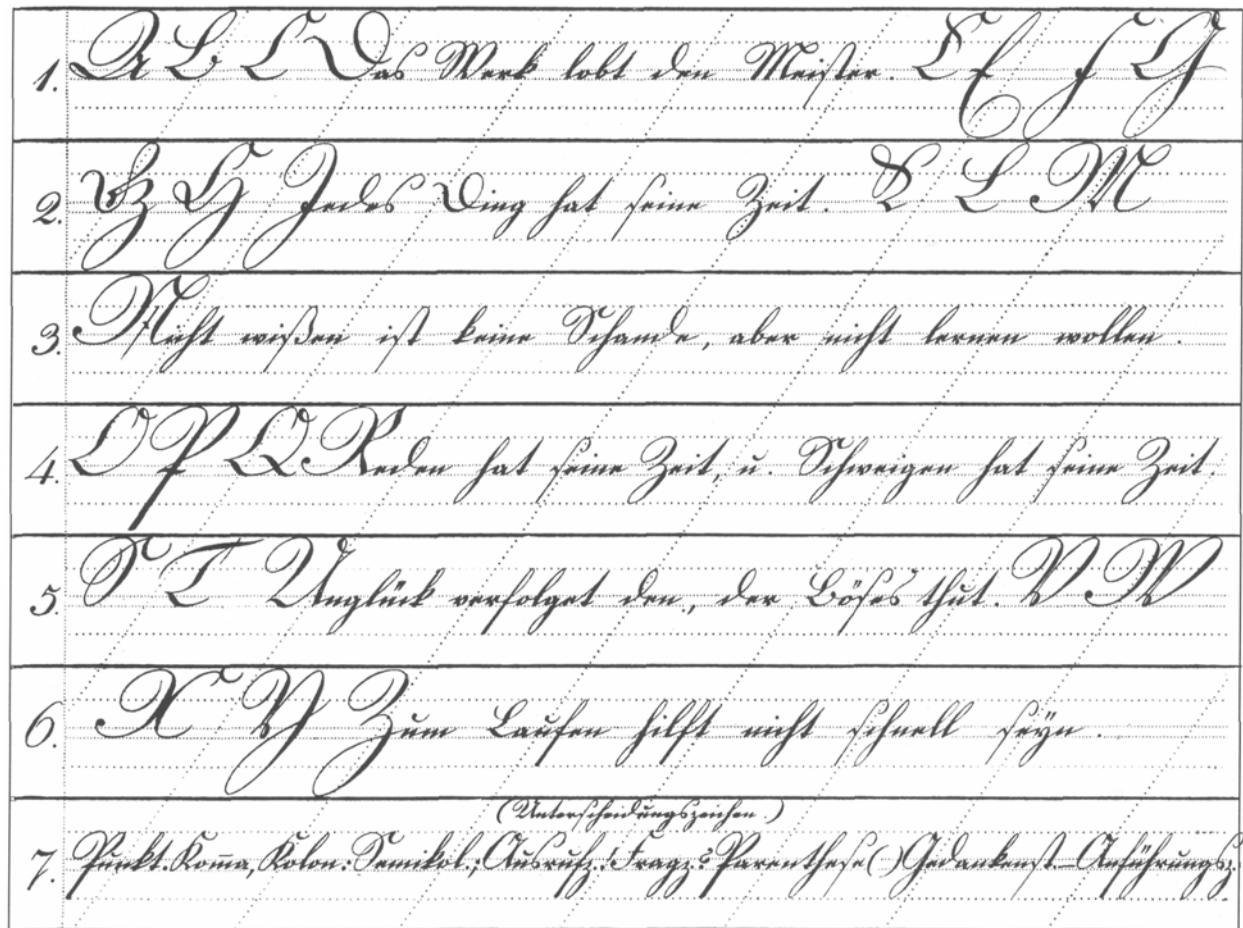 1. A B C Das Werk lobt den Meister. E F F G
2. H H Jedes Ding hat seine Zeit. K L M
3. Nicht wißen ist keine Schande, aber nicht lernen wollen.
4. O P Q Reden hat seine Zeit, u. Schweigen hat seine Zeit.
5. S T Unglück verfolget den, der Böses thut. V W
6. X Y Zum Laufen hilft nicht schnell seyn.
(Unterscheidungszeichen.)
7. Punkt. Kom̄a, Kolon: Semikol; Ausrufz.! Fragz:? Parenthese() Gedankenst– Anführungsz.